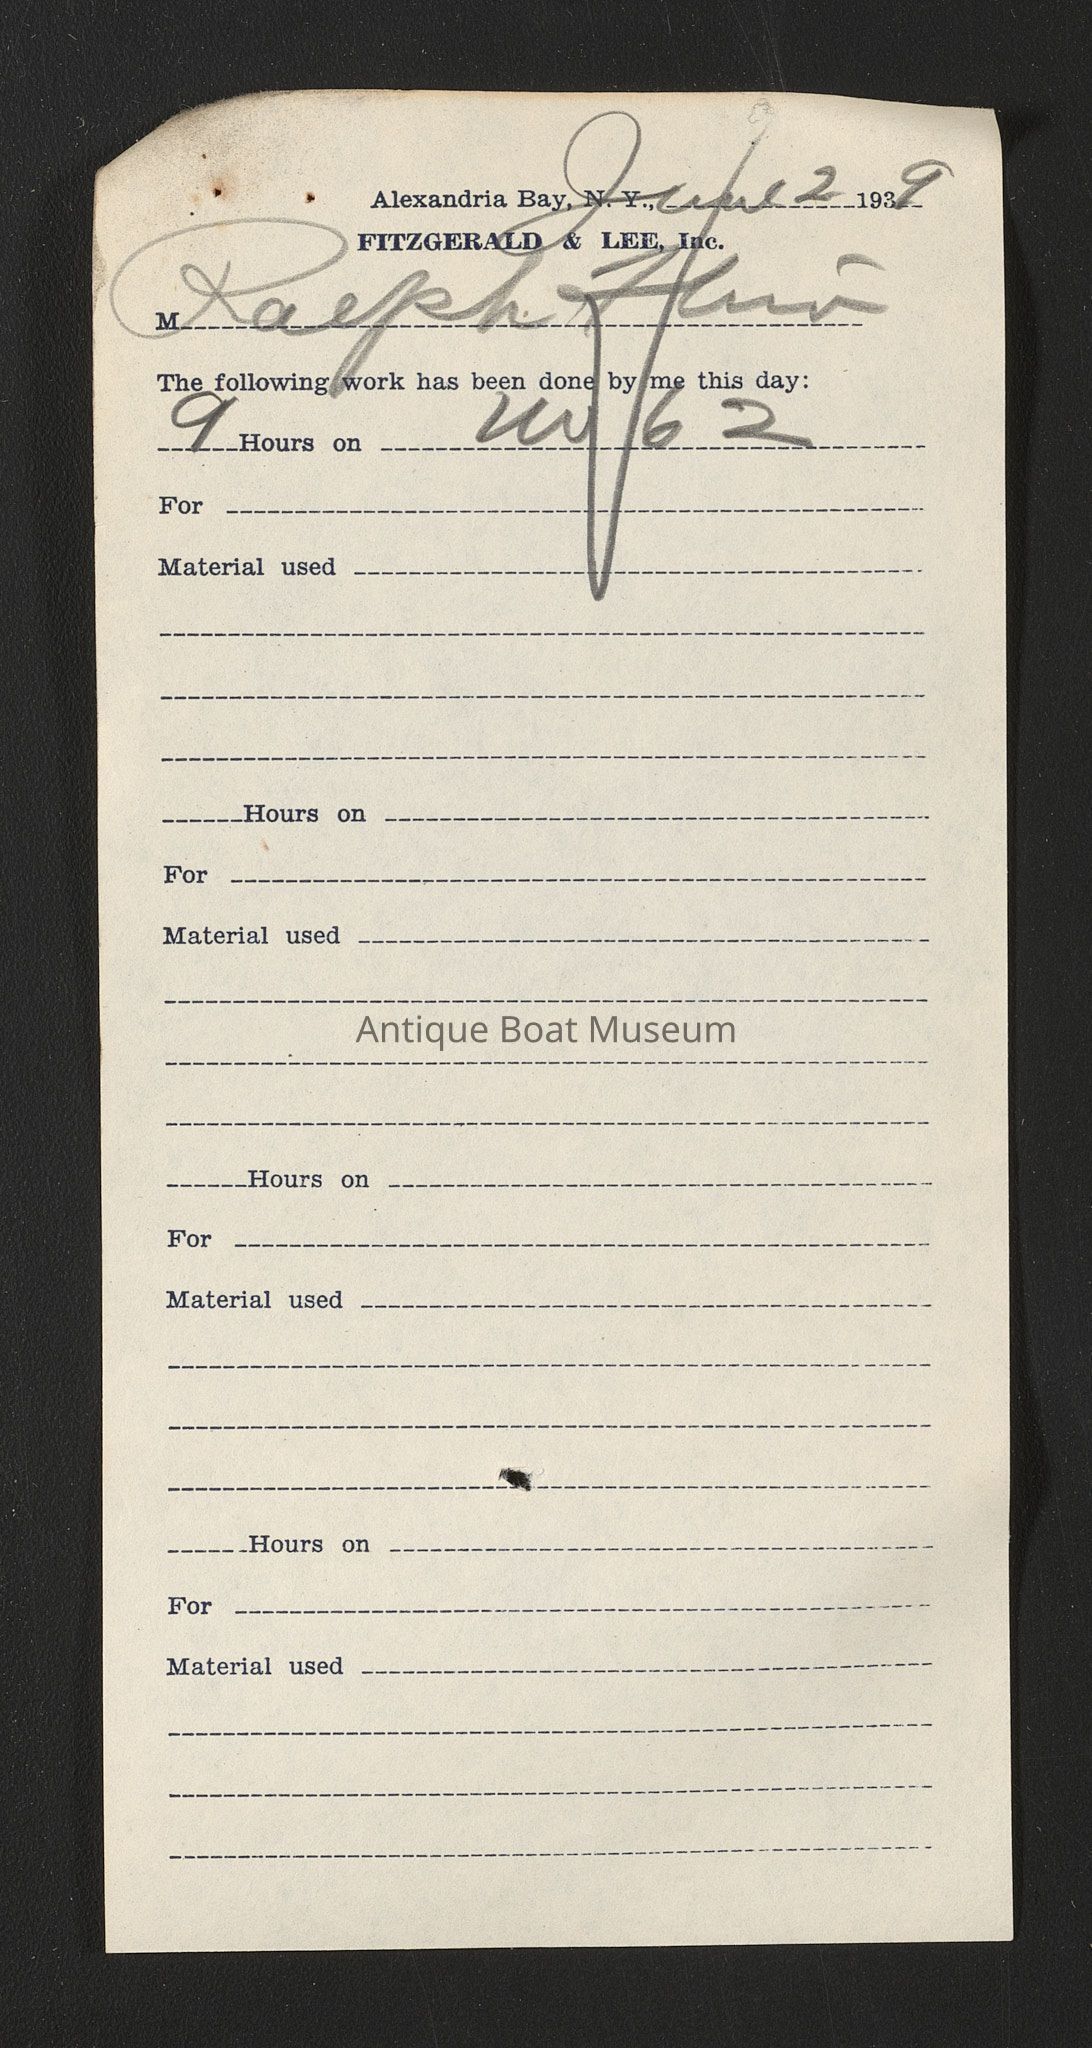 Alexandria Bay, N. Y., June 2 1939
FITZGERALD & LEE, Inc.
M Ralph
The following work has been done by me this day:
9 Hours on 62
For
Material used
Hours on
For
Material used
Antique Boat Museum
Hours on
For
Material used
Hours on
For
Material used